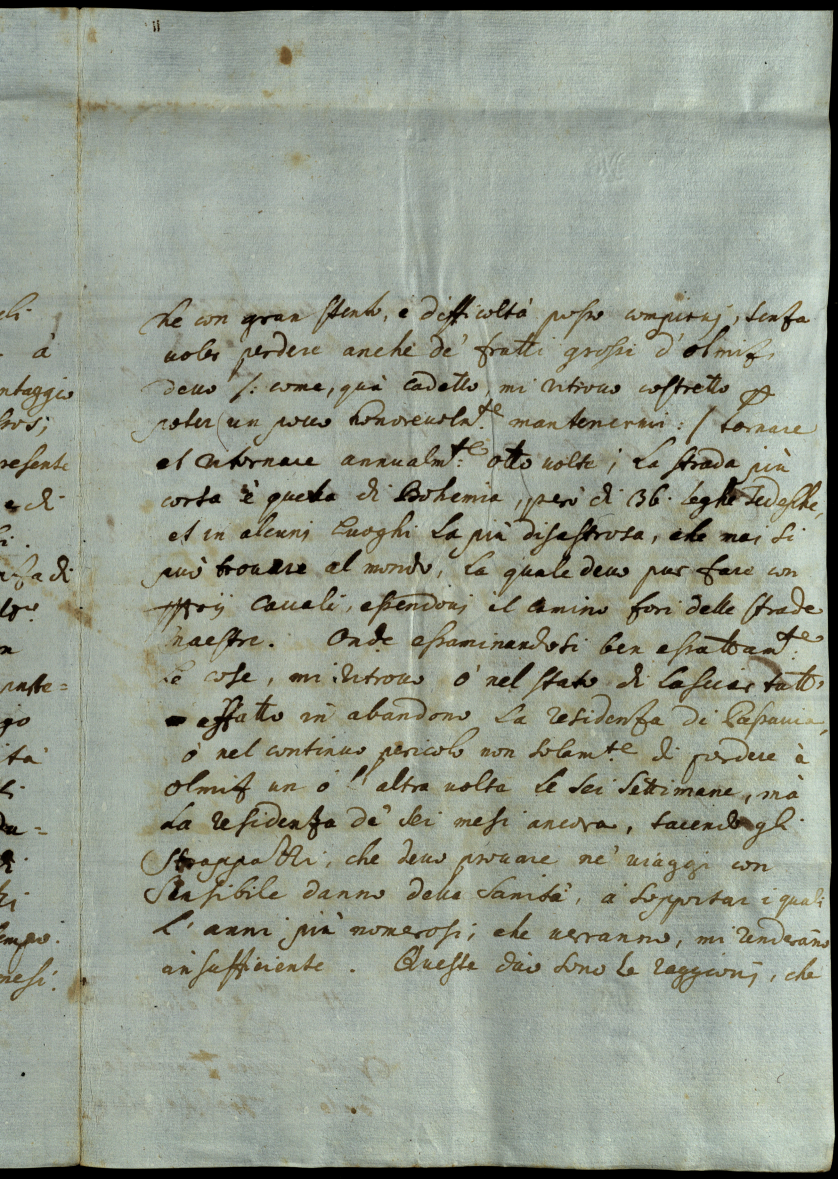 che con gran stento, e difficoltà posso compirvi, senza
voler perdere anche de' frutti grossi d'Olmiz,
devo /: come, quà cadetto, mi ritrovo costretto
poter un poco honorevolm.te mantenermi :/ tornare
et ritornare annualm.te otto volte; la strada più
corta è quella di Bohemia, però di 36. leghe Tedesche,
et in alcuni luoghi la più disastrosa, che mai si
può trovare al mondo, la quale devo pur fare con
cavali, essendovi il camino fori delle strade
maestre. Onde essaminandosi ben essattam.te
le cose, mi ritrovo ò nel stato di lasciar tutto
affatto in abandono la residenza di Passavia,
ò nel continuo pericolo non solam.te di perdere à
Olmiz un ò l'altra volta le sei settimane, mà
la residenza de' sei mesi ancora, tacendo gli
strappazzi, che devo provare ne' viaggi con
sensibile danno della sanità, à sopportar i quali
l'anni più nomerosi, che verranno, mi renderanno
insufficiente. Queste due sono le raggioni, che
eli
à
ntaggio
resente
di
nza di
n
go
tà
du=
empo.
mesi.